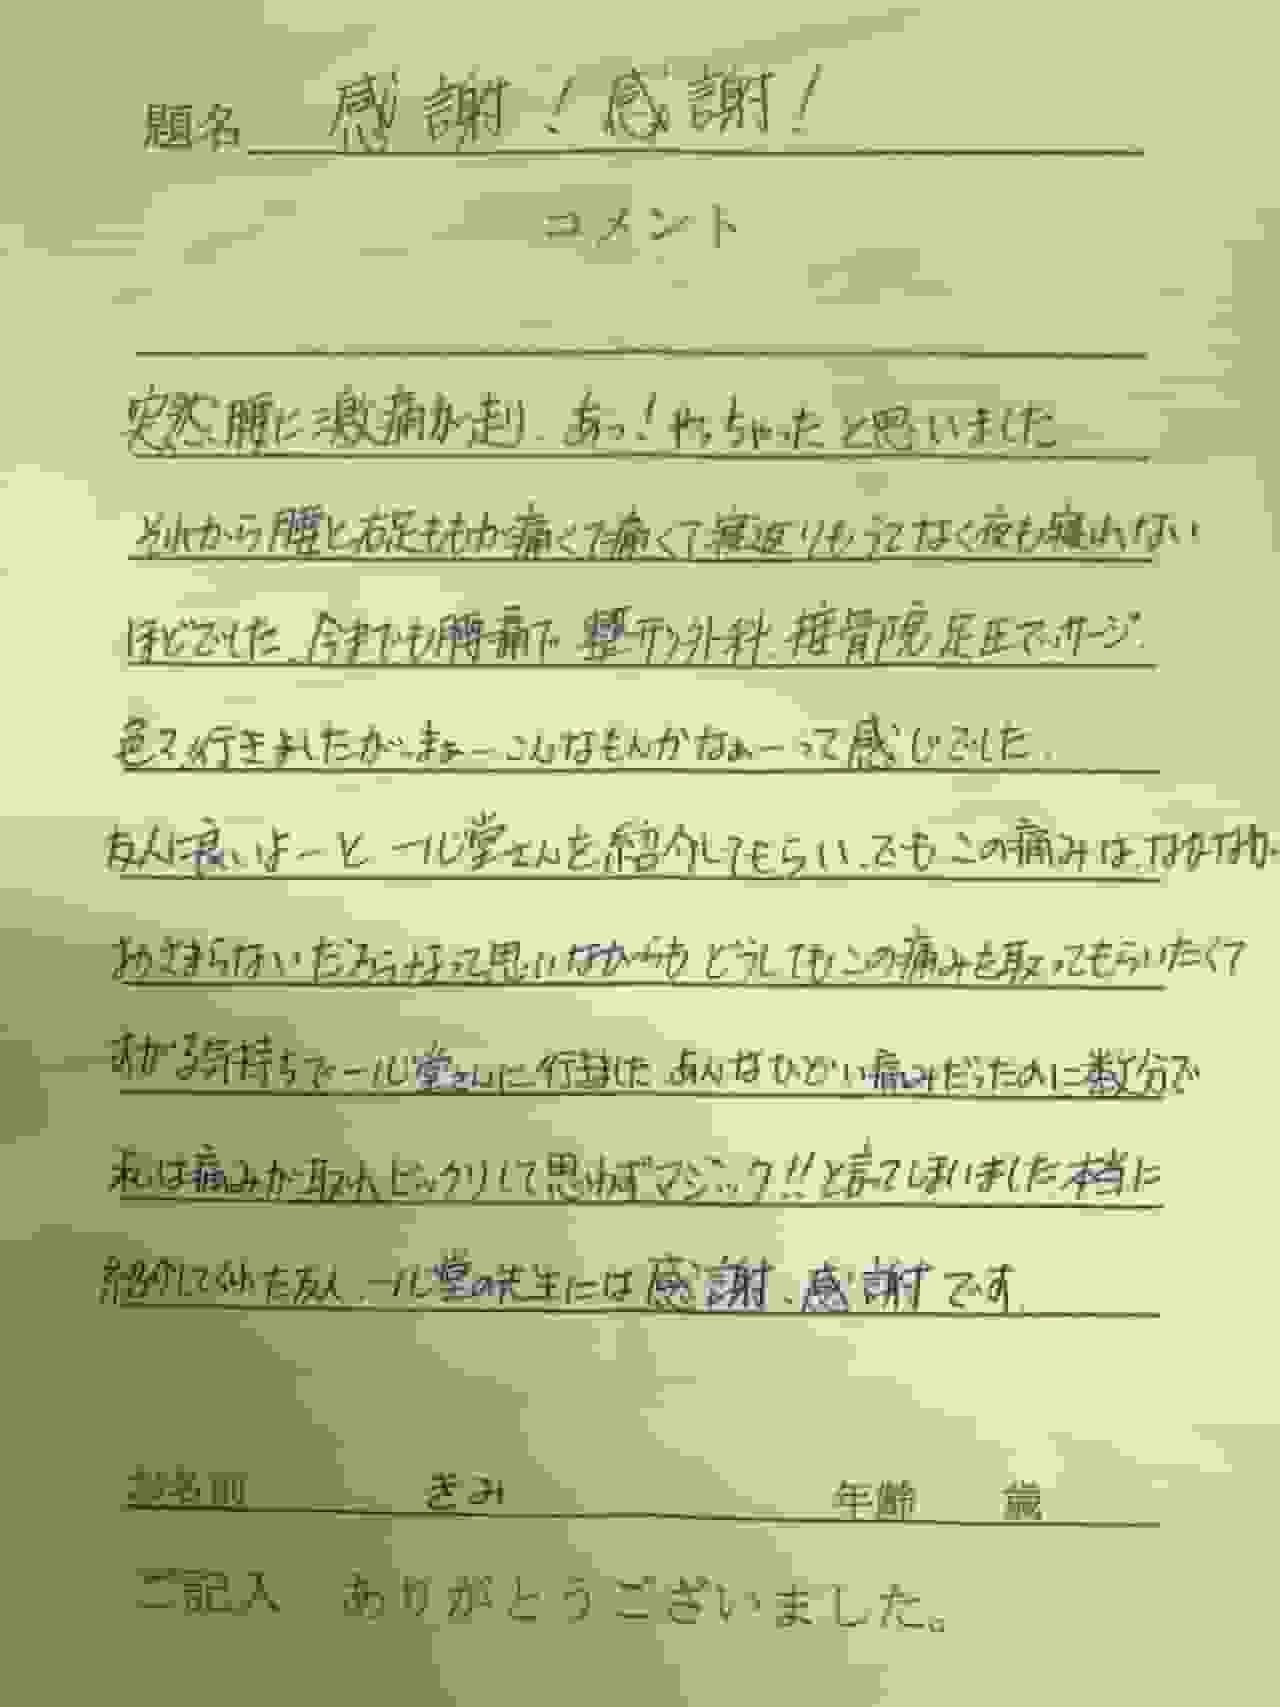 題名 感謝！感謝！
コメント
突然、腰に激痛が走り、あっ！やっちゃったと思いました
それから腰と右足ももが痛くて痛くて寝返りもうてなく夜も寝れない
ほどでした、今までも腰痛で整形外科、接骨院、足圧マッサージ、
色々行きましたが、まぁーこんなもんかなぁーって感じでした、
友人に良いよーと一心堂さんを紹介してもらい、でもこの痛みは、なかなか
おさまらないだろうなって思いながらもどうしてもこの痛みを取ってもらいたくて
すがる気持ちで一心堂さんに行きました あんなひどい痛みだったのに数分で
私は痛みが取れビックリして思わずマジック!!と言ってしまいました 本当に
紹介してくれた友人、一心堂の先生には感謝、感謝です、
お名前 きみ 年齢 歳
ご記入 ありがとうございました。